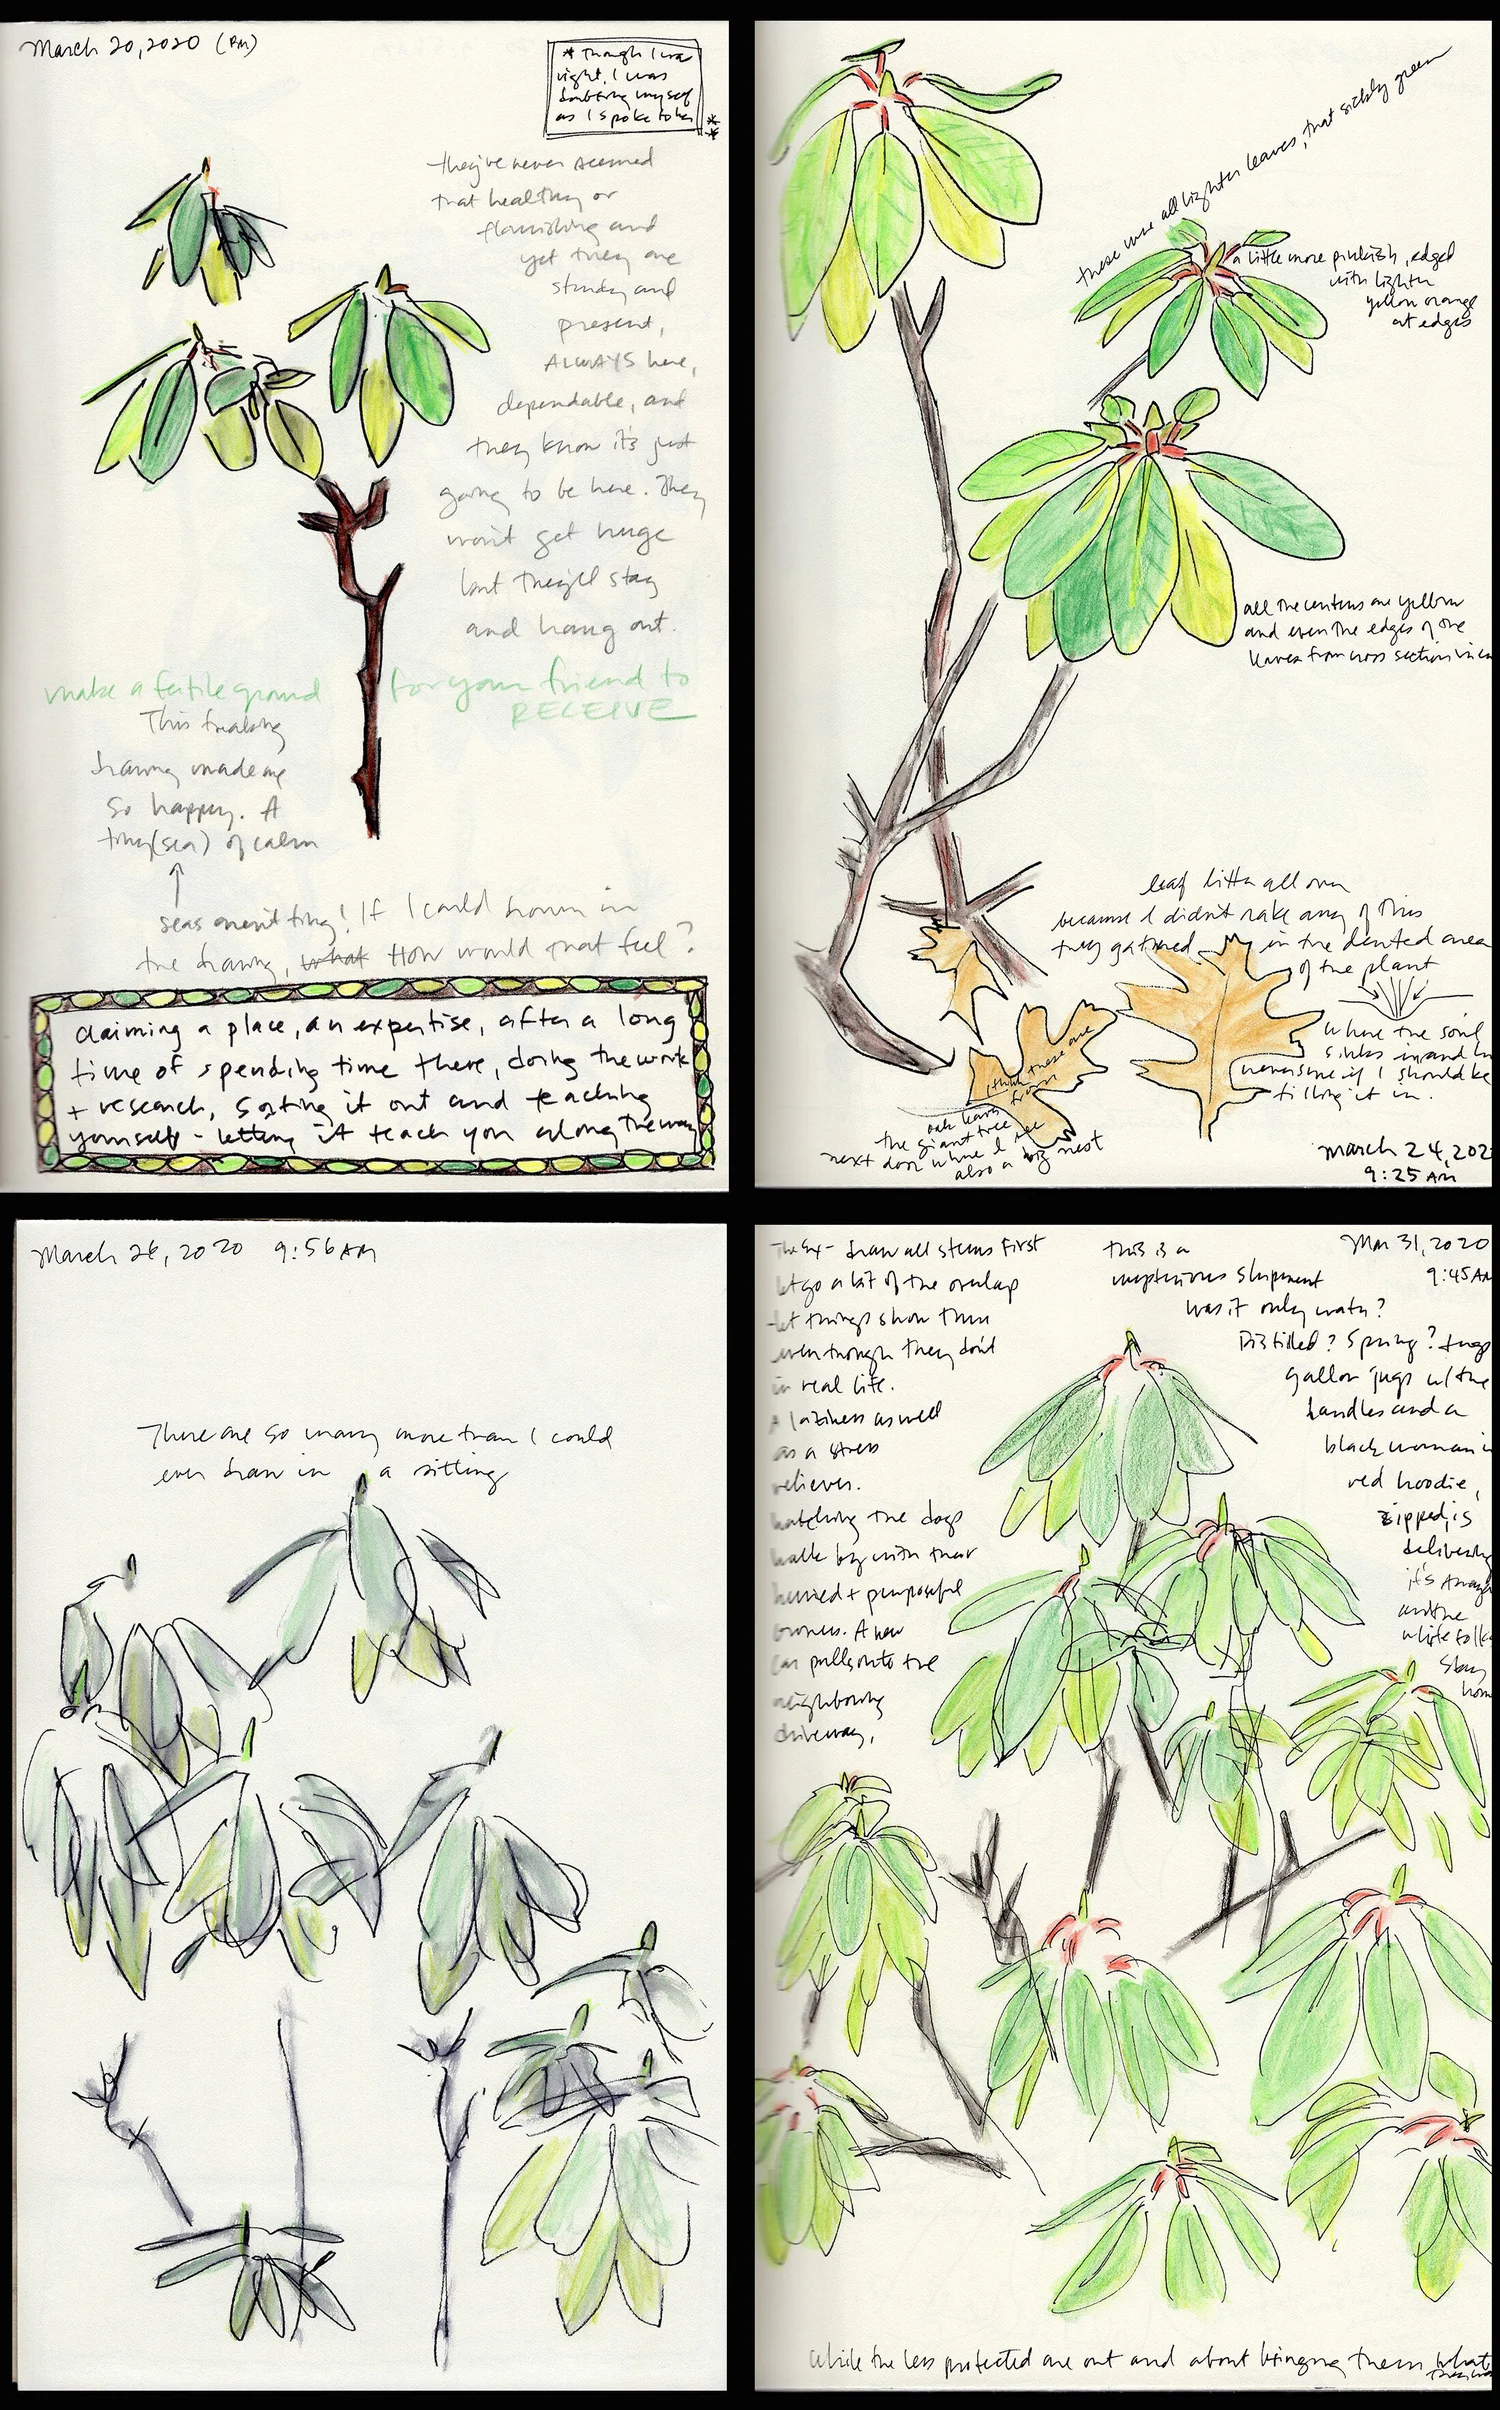 March 20, 2020 (PM)
* Though I was
right, I was
doubting myself
as I spoke to her
**
they've never seemed
that healthy or
flourishing and
yet they are
sturdy and
present,
ALWAYS here,
dependable, and
they know it's just
going to be here. They
won't get huge
but they'll stay
and hang out.
make a fertile ground for your friend to
RECEIVE
This freaking
drawing made me
so happy. A
tiny (sea) of calm
seas aren't tiny! If I could drown in
the drawing, what How would that feel?
claiming a place, an expertise, after a long
time of spending time there, doing the work
+ research, sorting it out and teaching
yourself - letting it teach you along the way
these were all lighter leaves, that sickly green
a little more pinkish, edged
with lighter
yellow orange
at edges
all the centers are yellow
and even the edges of the
leaves from cross section view
leaf litter all over
because I didn't rake any of this
they gathered in the dented area
of the plant
where the soil
sinks inward
I should be
filling it in.
I think these are
from
oak leaves
the giant tree
next door where I see
also a big nest
March 24, 202
9:25 AM
March 26, 2020 9:56 AM
There are so many more than I could
ever draw in a sitting
draw all stems first
let go a bit of the overlap
let things show thru
even though they don't
in real life.
A laziness as well
as a stress
reliever.
watching the dogs
walk by with their
hurried + purposeful
owners. A new
car pulls into the
neighboring
driveway,
this is a
mysterious shipment
was it only water?
Distilled? Spring? huge
gallon jugs w/ the
handles and a
black woman in
red hoodie,
zipped, is
delivering
and the
white folks
stay
home
Mar 31, 2020
9:45 AM
While the less protected are out and about bringing them what